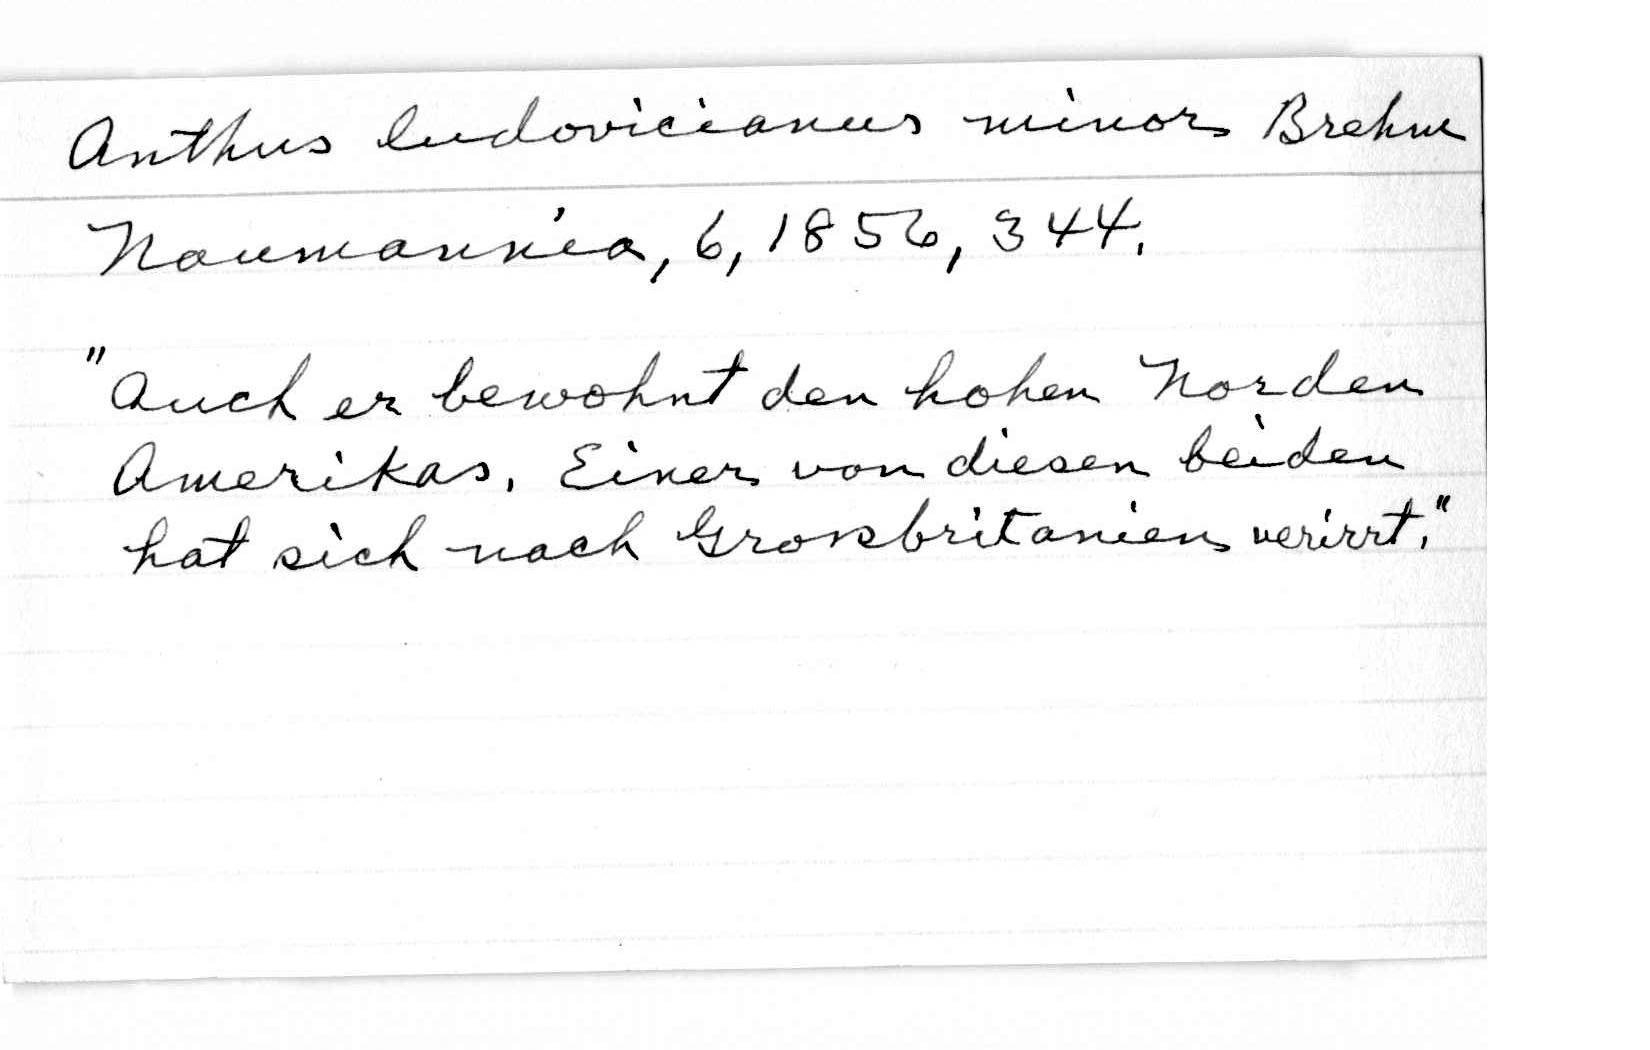 Anthus ludovicianus minor Brehm
Naumannia, 6, 1856, 344.
"Auch er bewohnt den hohen Norden
Amerikas. Einer von diesen beiden
hat sich nach Grossbritanien verirrt."